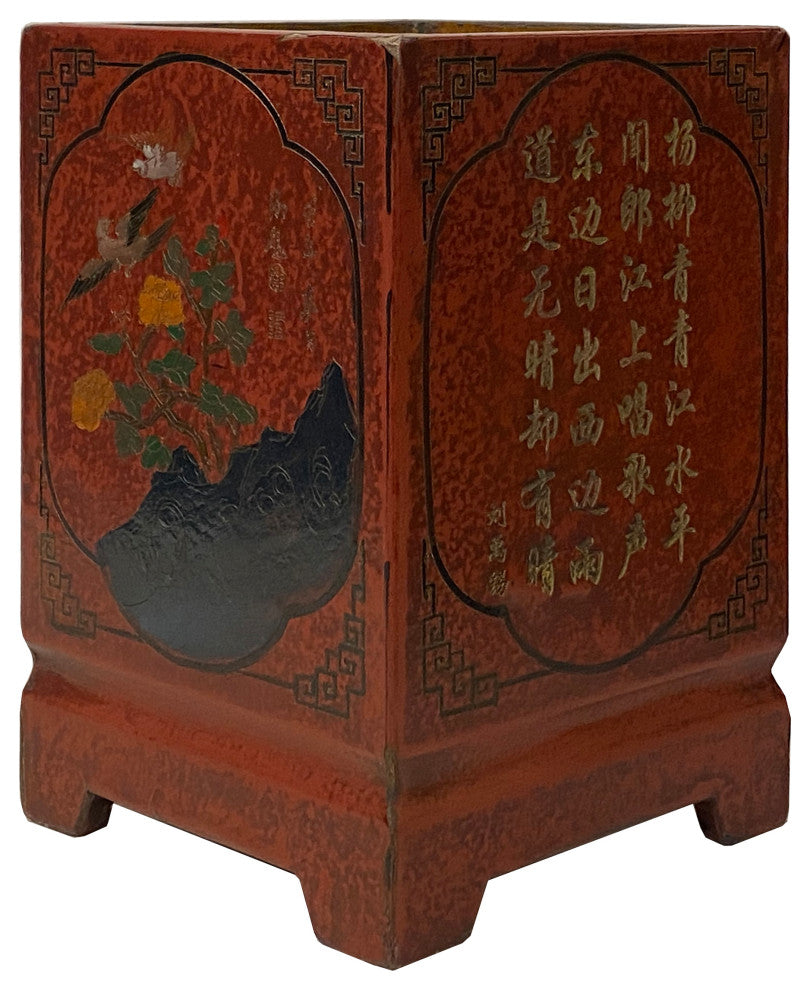 杨柳青青江水平
闻郎江上唱歌声
东边日出西边雨
道是无晴却有晴
刘禹锡